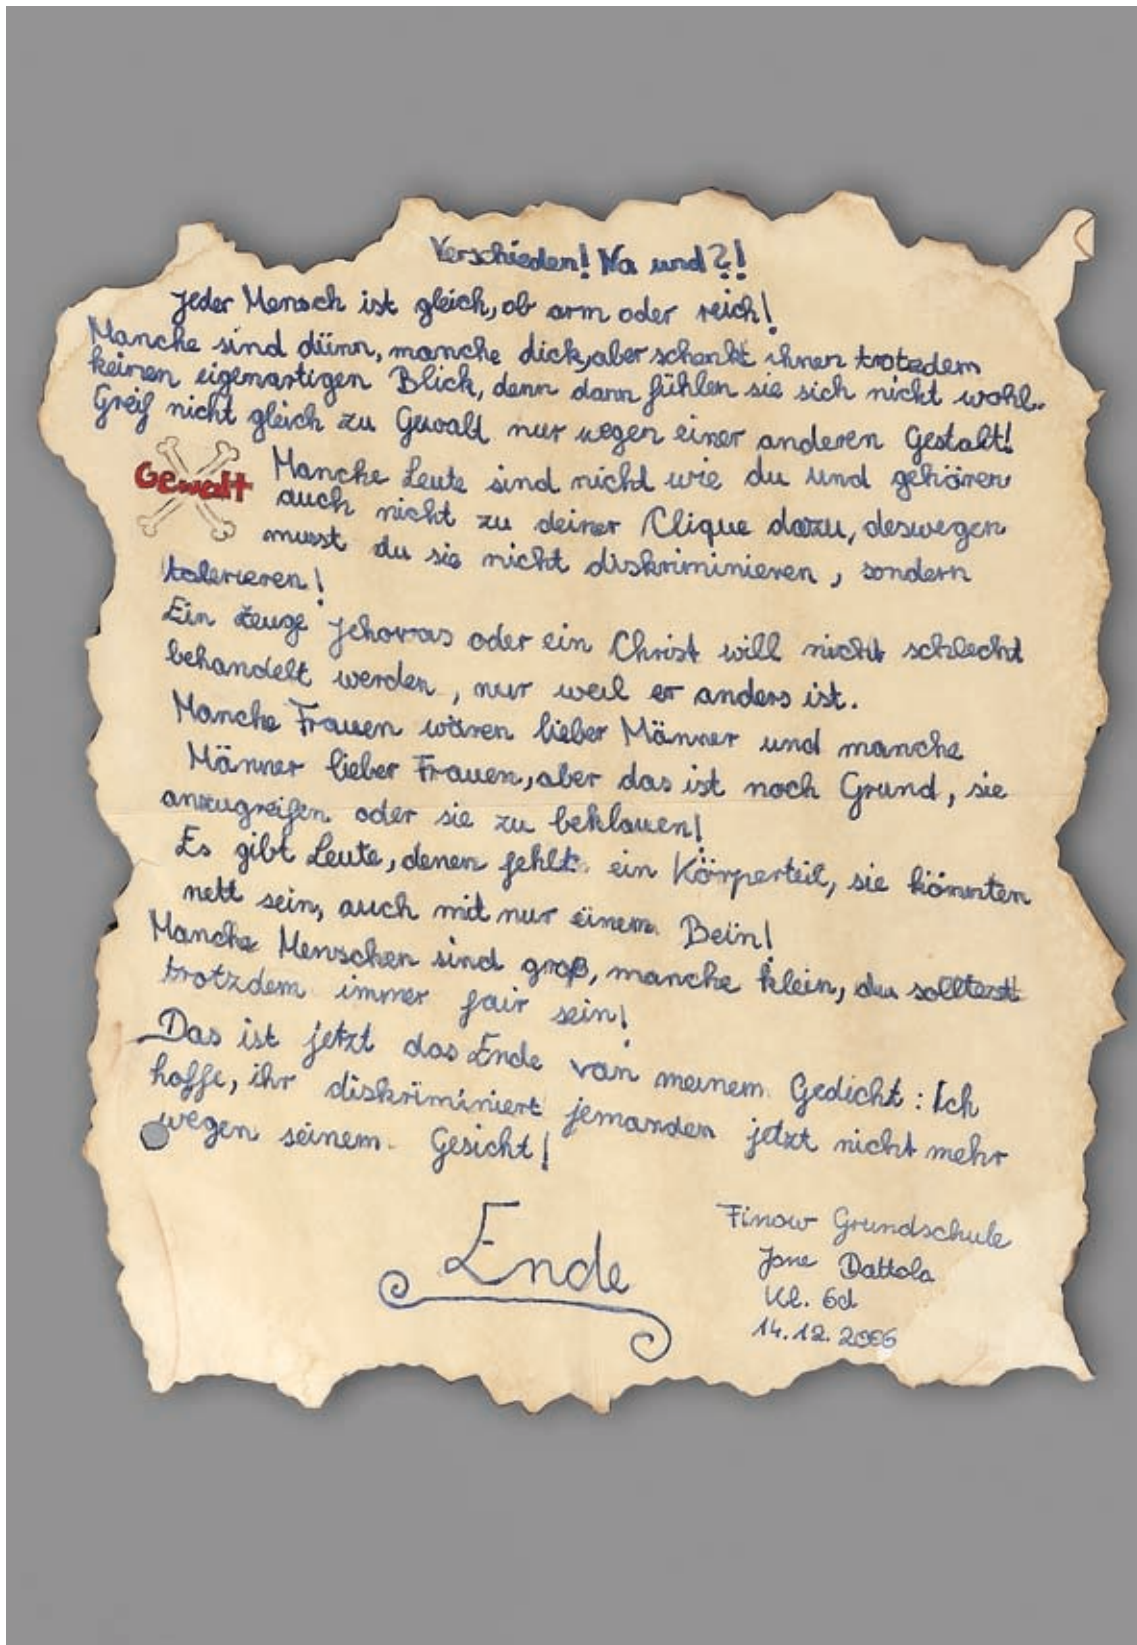 Verschieden! Na und?!
Jeder Mensch ist gleich, ob arm oder reich!
Manche sind dünn, manche dick, aber schenkt ihnen trotzdem
keinen eigenartigen Blick, denn dann fühlen sie sich nicht wohl.
Greif nicht gleich zu Gewalt nur wegen einer anderen Gestalt!
Gewalt
Manche Leute sind nicht wie du und gehören
auch nicht zu deiner Clique dazu, deswegen
musst du sie nicht diskriminieren, sondern
tolerieren!
Ein Zeuge Jehovas oder ein Christ will nicht schlecht
behandelt werden, nur weil er anders ist.
Manche Frauen wären lieber Männer und manche
Männer lieber Frauen, aber das ist noch Grund, sie
anzugreifen oder sie zu beklauen!
Es gibt Leute, denen fehlt ein Körperteil, sie könnten
nett sein, auch mit nur einem Bein!
Manche Menschen sind groß, manche klein, du solltest
trotzdem immer fair sein!
Das ist jetzt das Ende von meinem Gedicht: Ich
hoffe, ihr diskriminiert jemanden jetzt nicht mehr
wegen seinem Gesicht!
Ende
Finow Grundschule
Dattola
Kl. 6d
14.12.2006